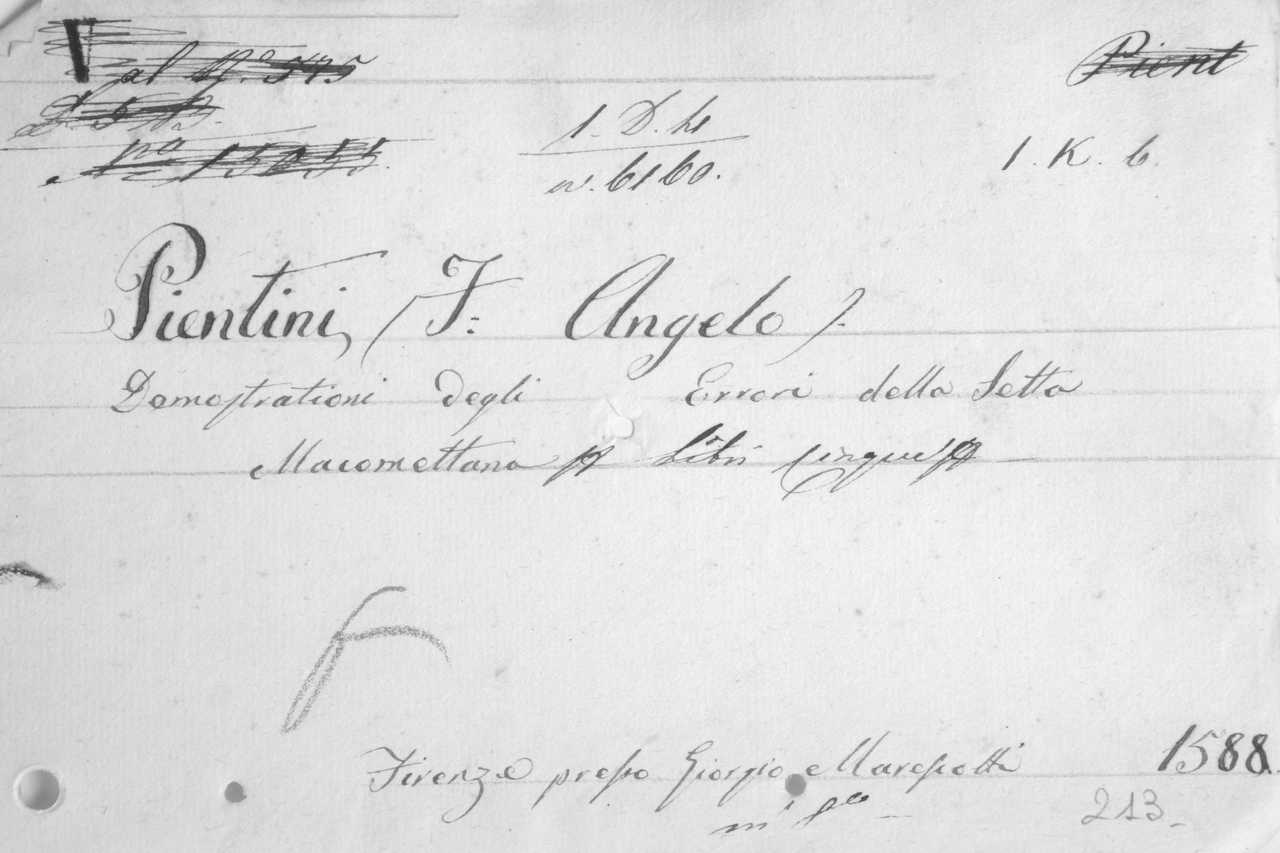 al N.º 545
Pient
1. D. 4
nº 15055
n. 6160.
1. K. 6.
Pientini, (F: Angelo).
Demostrationi degli Errori della Setta
Macomettana Libri Cinque
Firenze presso Giorgio Marescotti 1588
in 8ᵛᵒ
213